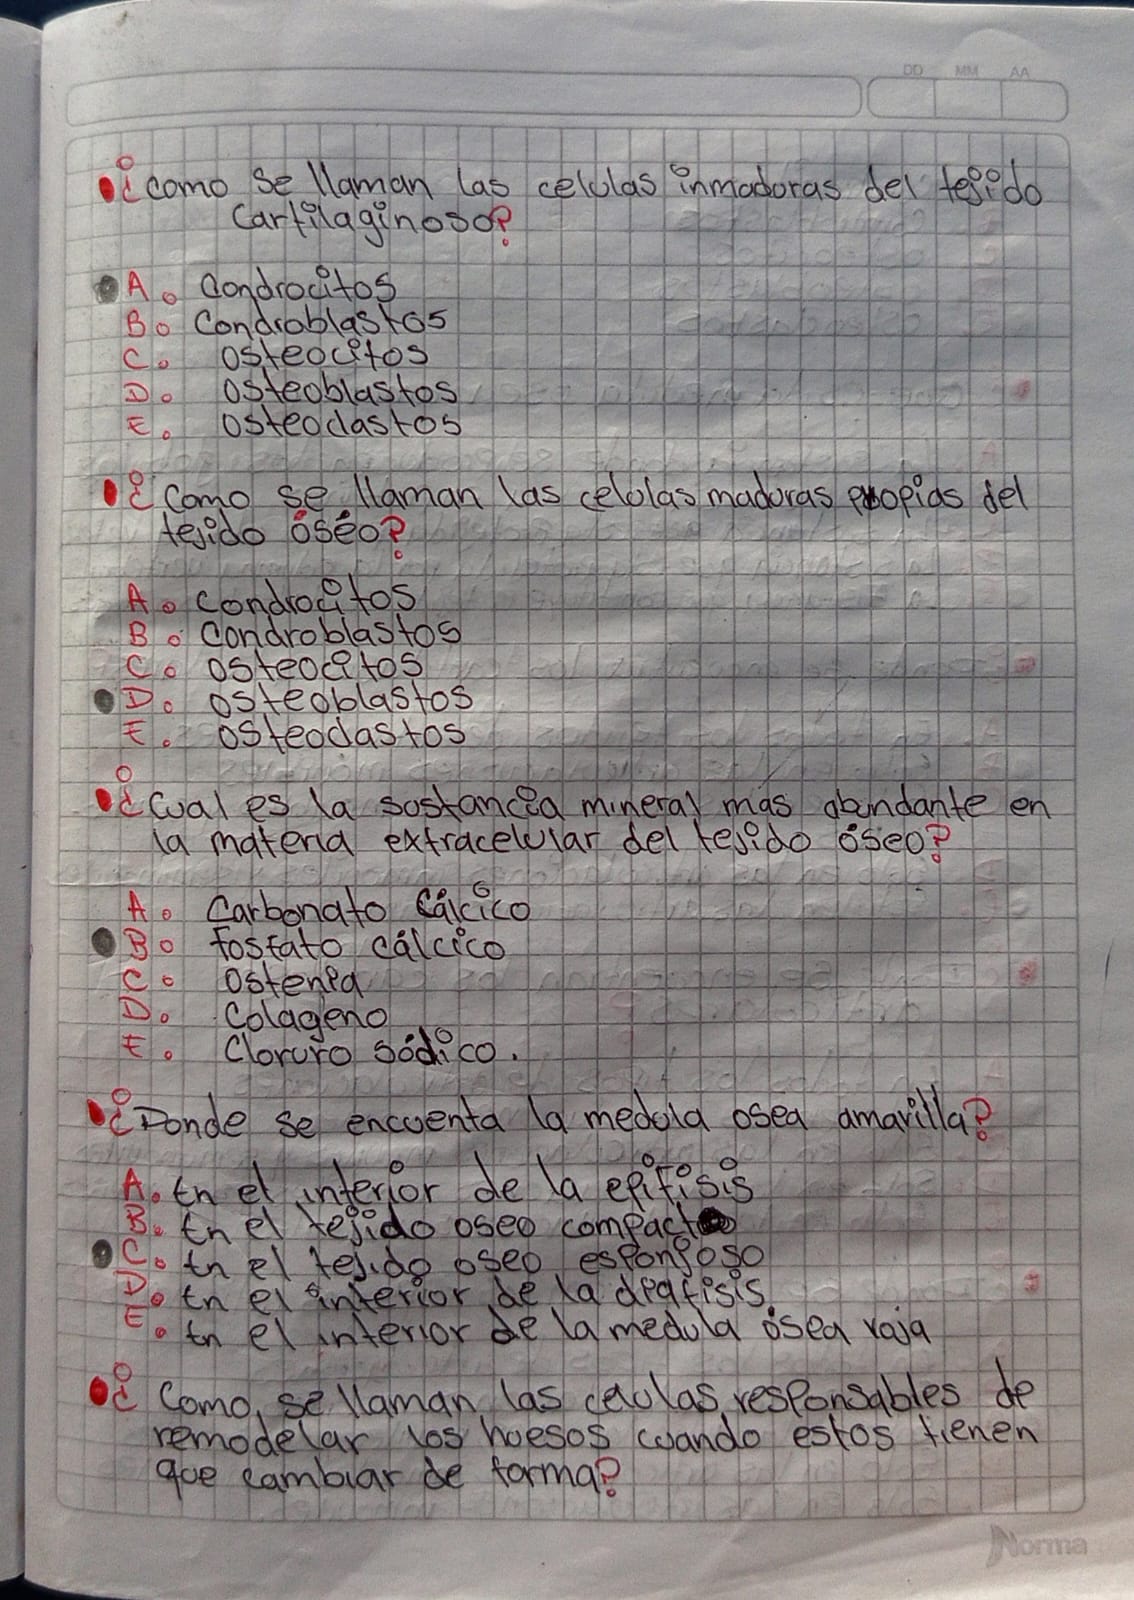 DD MM AA
¿como se llaman las celulas inmaduras del tejido
cartilaginoso?
A. Condrocitos
B. Condroblastos
C. osteocitos
D. osteoblastos
E. osteoclastos
¿Como se llaman las celulas maduras propias del
tejido óséo?
A. condrocitos
B. condroblastos
C. osteocitos
D. osteoblastos
E. osteoclastos
¿Cual es la sustancia mineral mas abundante en
la materia extracelular del tejido óseo?
A. Carbonato Cálcico
B. fosfato cálcico
C. Osteina
D. Colageno
E. Cloruro sódico.
¿Donde se encuenta la medula osea amarilla?
A. En el interior de la epifisis
B. En el tejido oseo compacto
C. En el tejido oseo esponjoso
D. En el interior de la diafisis
E. En el interior de la medula ósea roja
¿Como se llaman las celulas responsables de
remodelar los huesos cuando estos tienen
que cambiar de forma?
Norma